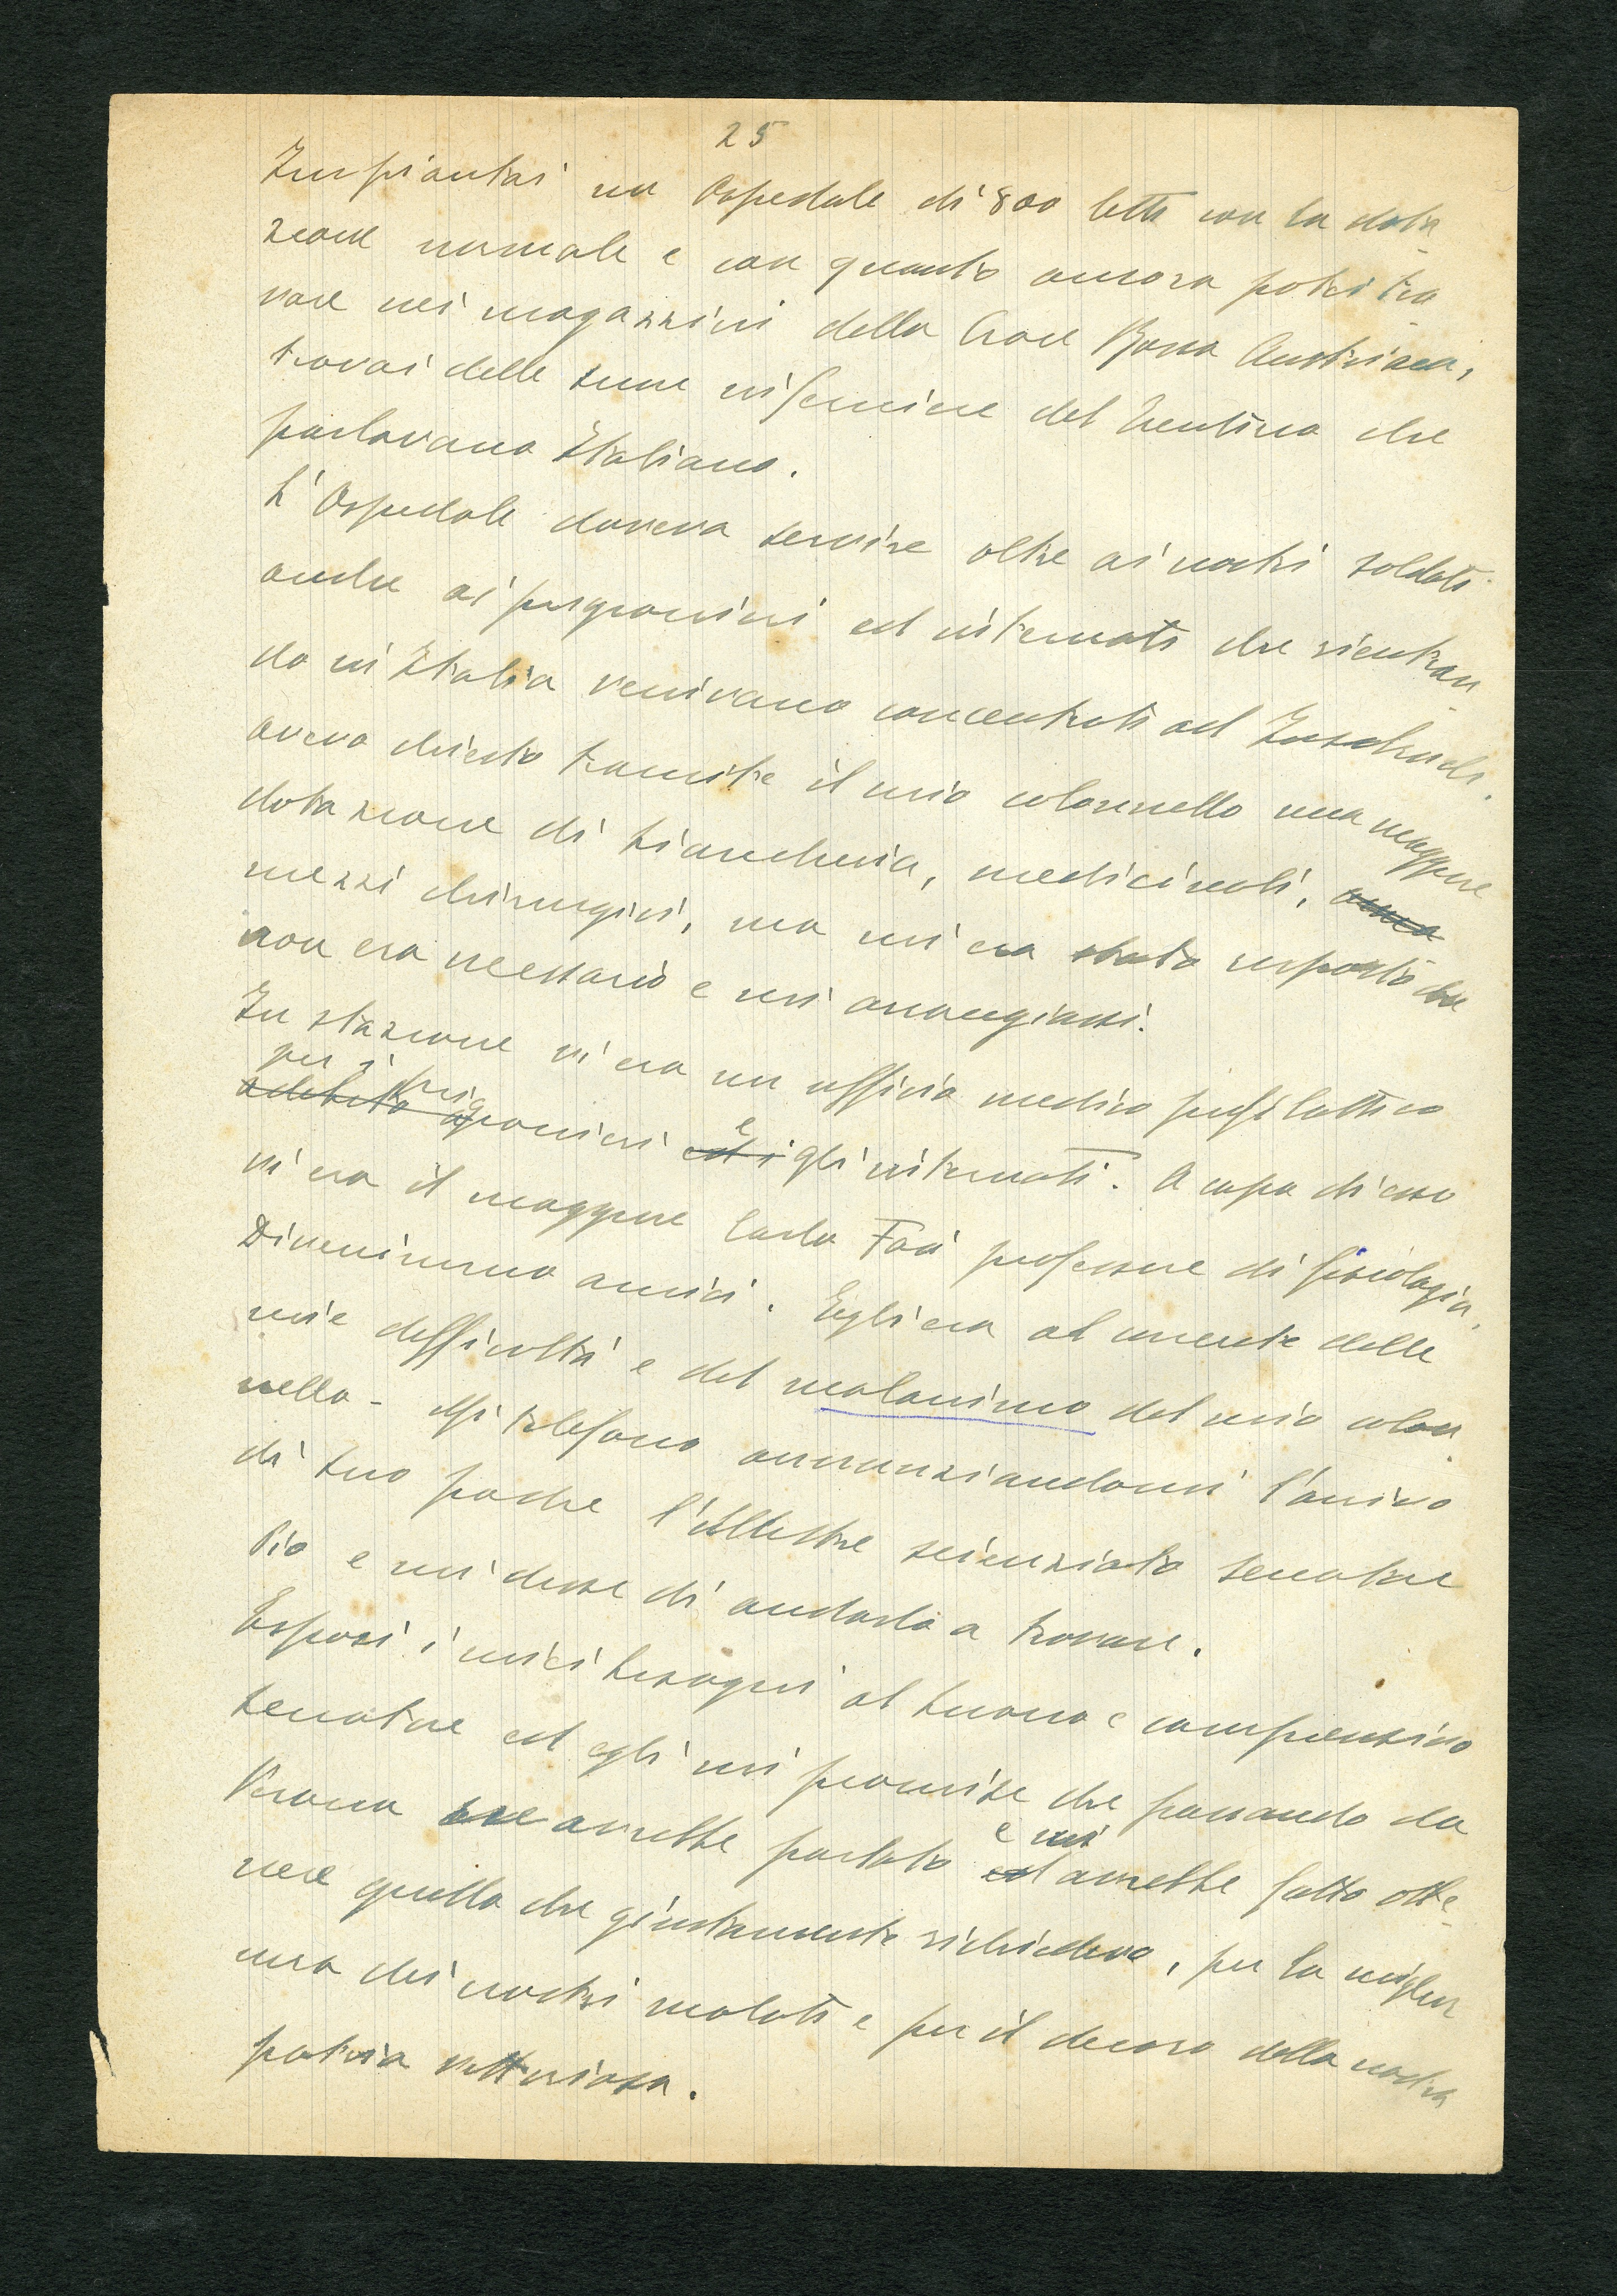 25
Impiantai un Ospedale di 800 letti con la dota-
zione normale e con quanto ancora potei tro-
vare nei magazzini della Croce Rossa Austriaca,
trovai delle suore infermiere del Trentino che
parlavano Italiano.
L'Ospedale doveva servire oltre ai nostri soldati
anche ai prigionieri ed internati che rientran-
do in Italia venivano concentrati ad Innsbruck.
avevo chiesto tramite il mio colonnello una maggiore
dotazione di biancheria, medicinali,
mezzi chirurgici, ma mi era stato risposto che
non era necessario e mi arrangiassi.
In stazione vi era un ufficio medico profilattico
per i prigionieri e gli internati. A capo di esso
vi era il maggiore Carlo Foà professore di fisiologia.
Divenimmo amici. Egli era al corrente delle
mie difficoltà e del malanimo del mio colon-
nello - Mi telefono annunziandomi l'arrivo
di suo padre l'illustre scienziato senatore
Pio e mi disse di andarlo a trovare.
Esposi i miei bisogni al buono e comprensivo
senatore ed egli mi promise che passando da
Verona ne avrebbe parlato e mi avrebbe fatto otte-
nere quello che giustamente richiedevo, per la miglior
cura dei nostri malati e per il decoro della nostra
patria vittoriosa.